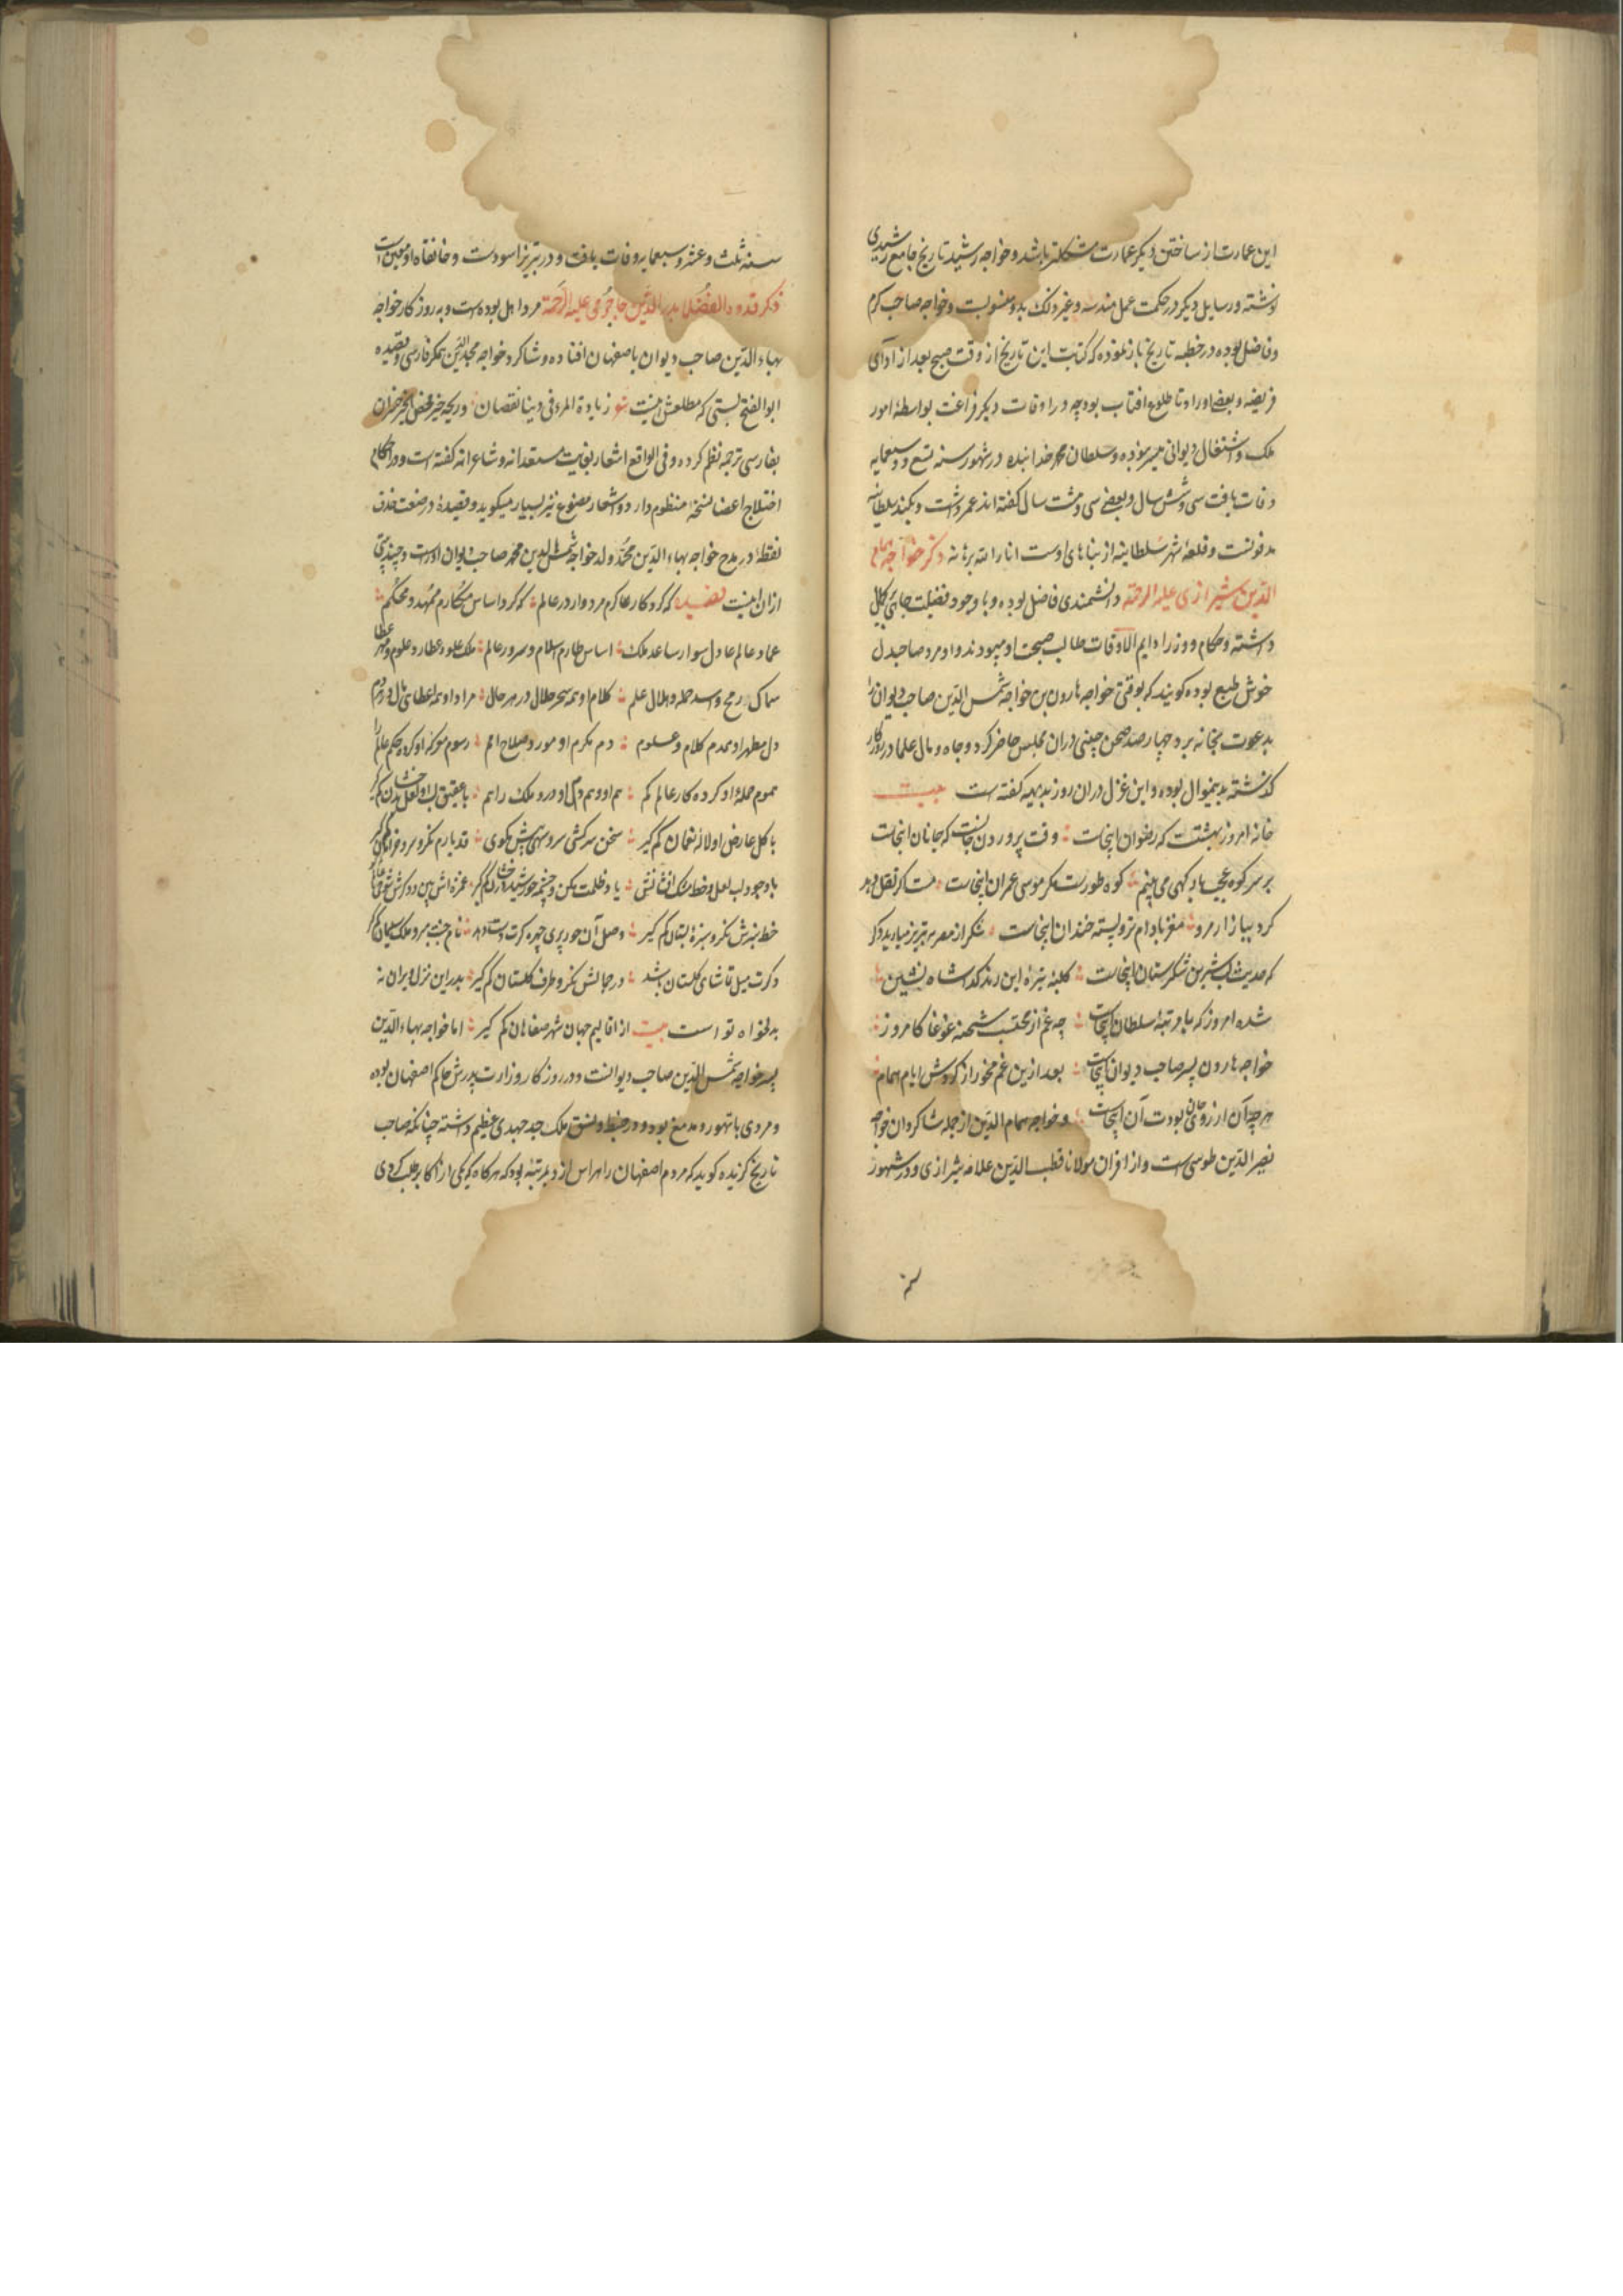 این عمارت از ساختن دیکر عمارت مشکلتر باشد و خواجه رشید تاریخ جامع رشیدی
نوشته و رسایل دیکر در حکمت عمل هندسه و غیر ذلک بدو منسوبست و خواجه صاحب کرم
و فاضل بوده در خطبه تاریخ باز نموده که کتابت این تاریخ از وقت صبح بعد از ادآی
فریضه و بعضی اوراد تا طلوع افتاب بود چه در اوقات دیکر فراغت بواسطهٔ امور
ملک و اشتغال دیوانی میسر نبوده و سلطان محمد خدابنده در شهور سنه تسع و سبعمایه
وفات یافت سی و شش سال و بعضی سی و هشت سال کفته اند عمر داشت و بکنبد سلطانیه
مدفونست و قلعهٔ شهر سلطانیه از بناهای اوست انار الله برهانه ذکر خواجه همام
الدین شیرازی علیه الرحمة دانشمندی فاضل بوده و با وجود فضیلت جاهی بکمال
داشته و حکام و وزرا دایم الاوقات طالب صحبت او میبودند و او مرد صاحبدل
خوش طبع بوده کویند که بوقتی خواجه هارون بن خواجه شمس الدین صاحب دیوان را
بدعوت بخانه برد چهار صد صحن چینی دران مجلس حاضر کرد و جاه و مال علما در روزکار
کذشته بدینموال بوده و این غزل دران روز بدیهه کفته ست بیت
خانه امروز بهشتست که رضوان اینجاست وقت پروردن جانست که جانان اینجاست
بر سر کوه عجب بارکهی می بینم کوه طورست مکر موسی عمران اینجاست مست اکر نقل دهد
کرد ببازار مرو مغز بادام تر و پسته خندان اینجاست شکر از مصر بتبریز میارید دکر
که حدیث لب شیرین شکرستان اینجاست کلبهٔ تیرهٔ این رند کدا شاه نشین
شده امروز که با مرتبهٔ سلطان اینجاست چه غم از محتسب و شحنه و غوغا کامروز
خواجه هارون پسر صاحب دیوان اینجاست بعد ازین غم مخور از کردش ایام همام
هر چه آن ارزوی جان بودت آن اینجاست و خواجه همام الدین از جمله شاکردان خواجه
نصیر الدین طوسی است و از اقران مولانا قطب الدین علامه شیرازی و در شهور
سنه ثلث و عشر و سبعمایه وفات یافت و در تبریز اسودست و خانقاه او معین است
ذکر قدوة الفضلا بدر الدین جاجرمی علیه الرحمة مرد اهل بوده ست و بروزکار خواجه
بهاء الدین صاحب دیوان باصفهان افتاده و شاکرد خواجه مجد الدین همکر فارسی و قصیده
ابو الفتح بستی که مطلعش اینست شعر زیادة المرء فی دنیا نقصان و ربحه غیر محض الخیر خسران
بفارسی ترجمه نظم کرده و فی الواقع اشعار بغایت مستعدانه و شاعرانه کفته است و در احکام
اختلاج اعضا نسخهٔ منظوم دارد و اشعار مصنوع نیز بسیار میکوید و قصیدهٔ در صنعت حذف
نقطه در مدح خواجه بهاء الدین محمد ولد خواجه شمس الدین محمد صاحب دیوان اوراست و چند بیتی
ازان اینست قصیده که کرد کار عا کرم مردوار در عالم که کرد اساس مکارم ممهد و محکم
عماد عالم عادل سوار ساعد ملک اساس طارم اسلام و سرور عالم ملک علو و عطارد علوم و مهر عطا
سماک رمح و اسد حمله و هلال علم کلام او همه سحر حلال در هر حال مراد او همه اعطای مال در هر دم
دل مطهر او همدم کلام و علوم دم مکرم او مورد صلاح امم رسوم معرکهٔ او کرده حکم عالم را
هموم حملهٔ او کرده کار عالم کم هم او و هم دل او در ملک را هم
با کل عارض او لالهٔ نعمان کم کیر سخن سرکشی سرو سهی پیش مکوی قد یارم نکر و سرو خرامان کم کیر
با وجود لب لعل و خط مشک افشانش یاد ظلمت مکن و چشمه
خط سبزش نکر و سبزهٔ بستان کم کیر وصل آن حور پری چهره کرت دست دهد نام جنت مبر و ملک سلیمان کم کیر
و کرت میل تماشای کلستان باشد در جمالش نکر و طرف کلستان کم کیر بدر این نزل ویران نه
بدلخواه تو است بیت از اقالیم جهان شهر صفاهان کم کیر اما خواجه بهاء الدین
پسر خواجه شمس الدین صاحب دیوانست و در روزکار وزارت پدرش حاکم اصفهان بوده
و مردی با تهور و مدمغ بوده و در ضبط و نسق ملک جد و جهدی عظیم داشته چنانکه صاحب
تاریخ کزیده کوید که مردم اصفهان را هراس از و بمرتبهٔ بود که هرکاه که یکی از اکابر طلب کردی